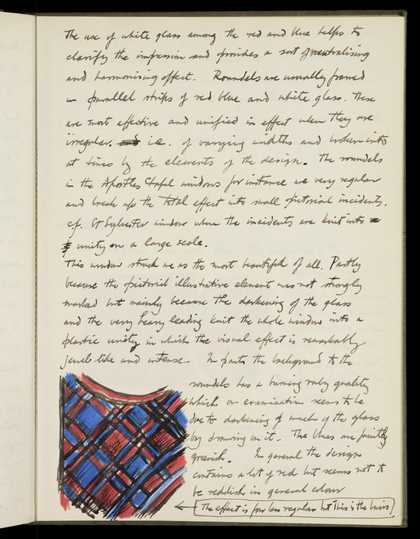 The use of white glass among the red and blue helps to
clarify the impression and provides a sort of neutralising
and harmonising effect. Roundels are usually framed
in parallel strips of red blue and white glass. These
are most effective and unified in effect when they are
irregular. i.e. of varying widths and broken into
at times by the elements of the design. The roundels
in the Apostles Chapel windows for instance are very regular
and break up the total effect into small pictorial incidents.
cf. St Sylvester window where the incidents are knit into
unity on a large scale.
This window struck me as the most beautiful of all. Partly
because the pictorial illustrative element was not strongly
marked but mainly because the darkening of the glass
and the very heavy leading knit the whole window into a
plastic unity in which the visual effect is remarkably
jewel-like and intense. In parts the background to the
roundels has a burning ruby quality
which on examination seems to be
due to darkening of much of the glass
by drawing on it. The blues are faintly
greenish. In general the design
contains a lot of red but seems not to
be reddish in general colour
← The effect is far less regular but this is the basis